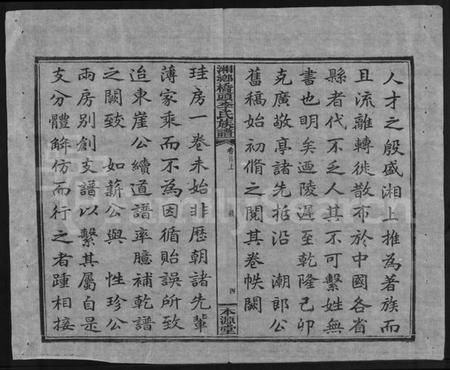 人才之殷盛湘上推為著族而
且流離轉徙散布於中國各省
縣者代不乏人其不可繫姓無
書也明矣迺陵遲至乾隆己卯
克廣敬亭諸先哲沿 潮郎公
舊稿始初脩之閱其卷帙闕
湘鄉橋頭李氏族譜
卷首上
四
本源堂
珪房一卷未始非歷朝諸先輩
薄家乘而不為因循貽誤所致
迨東崖公續道譜率臆補乾譜
之闕致 如薪公與 性珍公
兩房別創支譜以繫其屬自是
支分體解仿而行之者踵相接